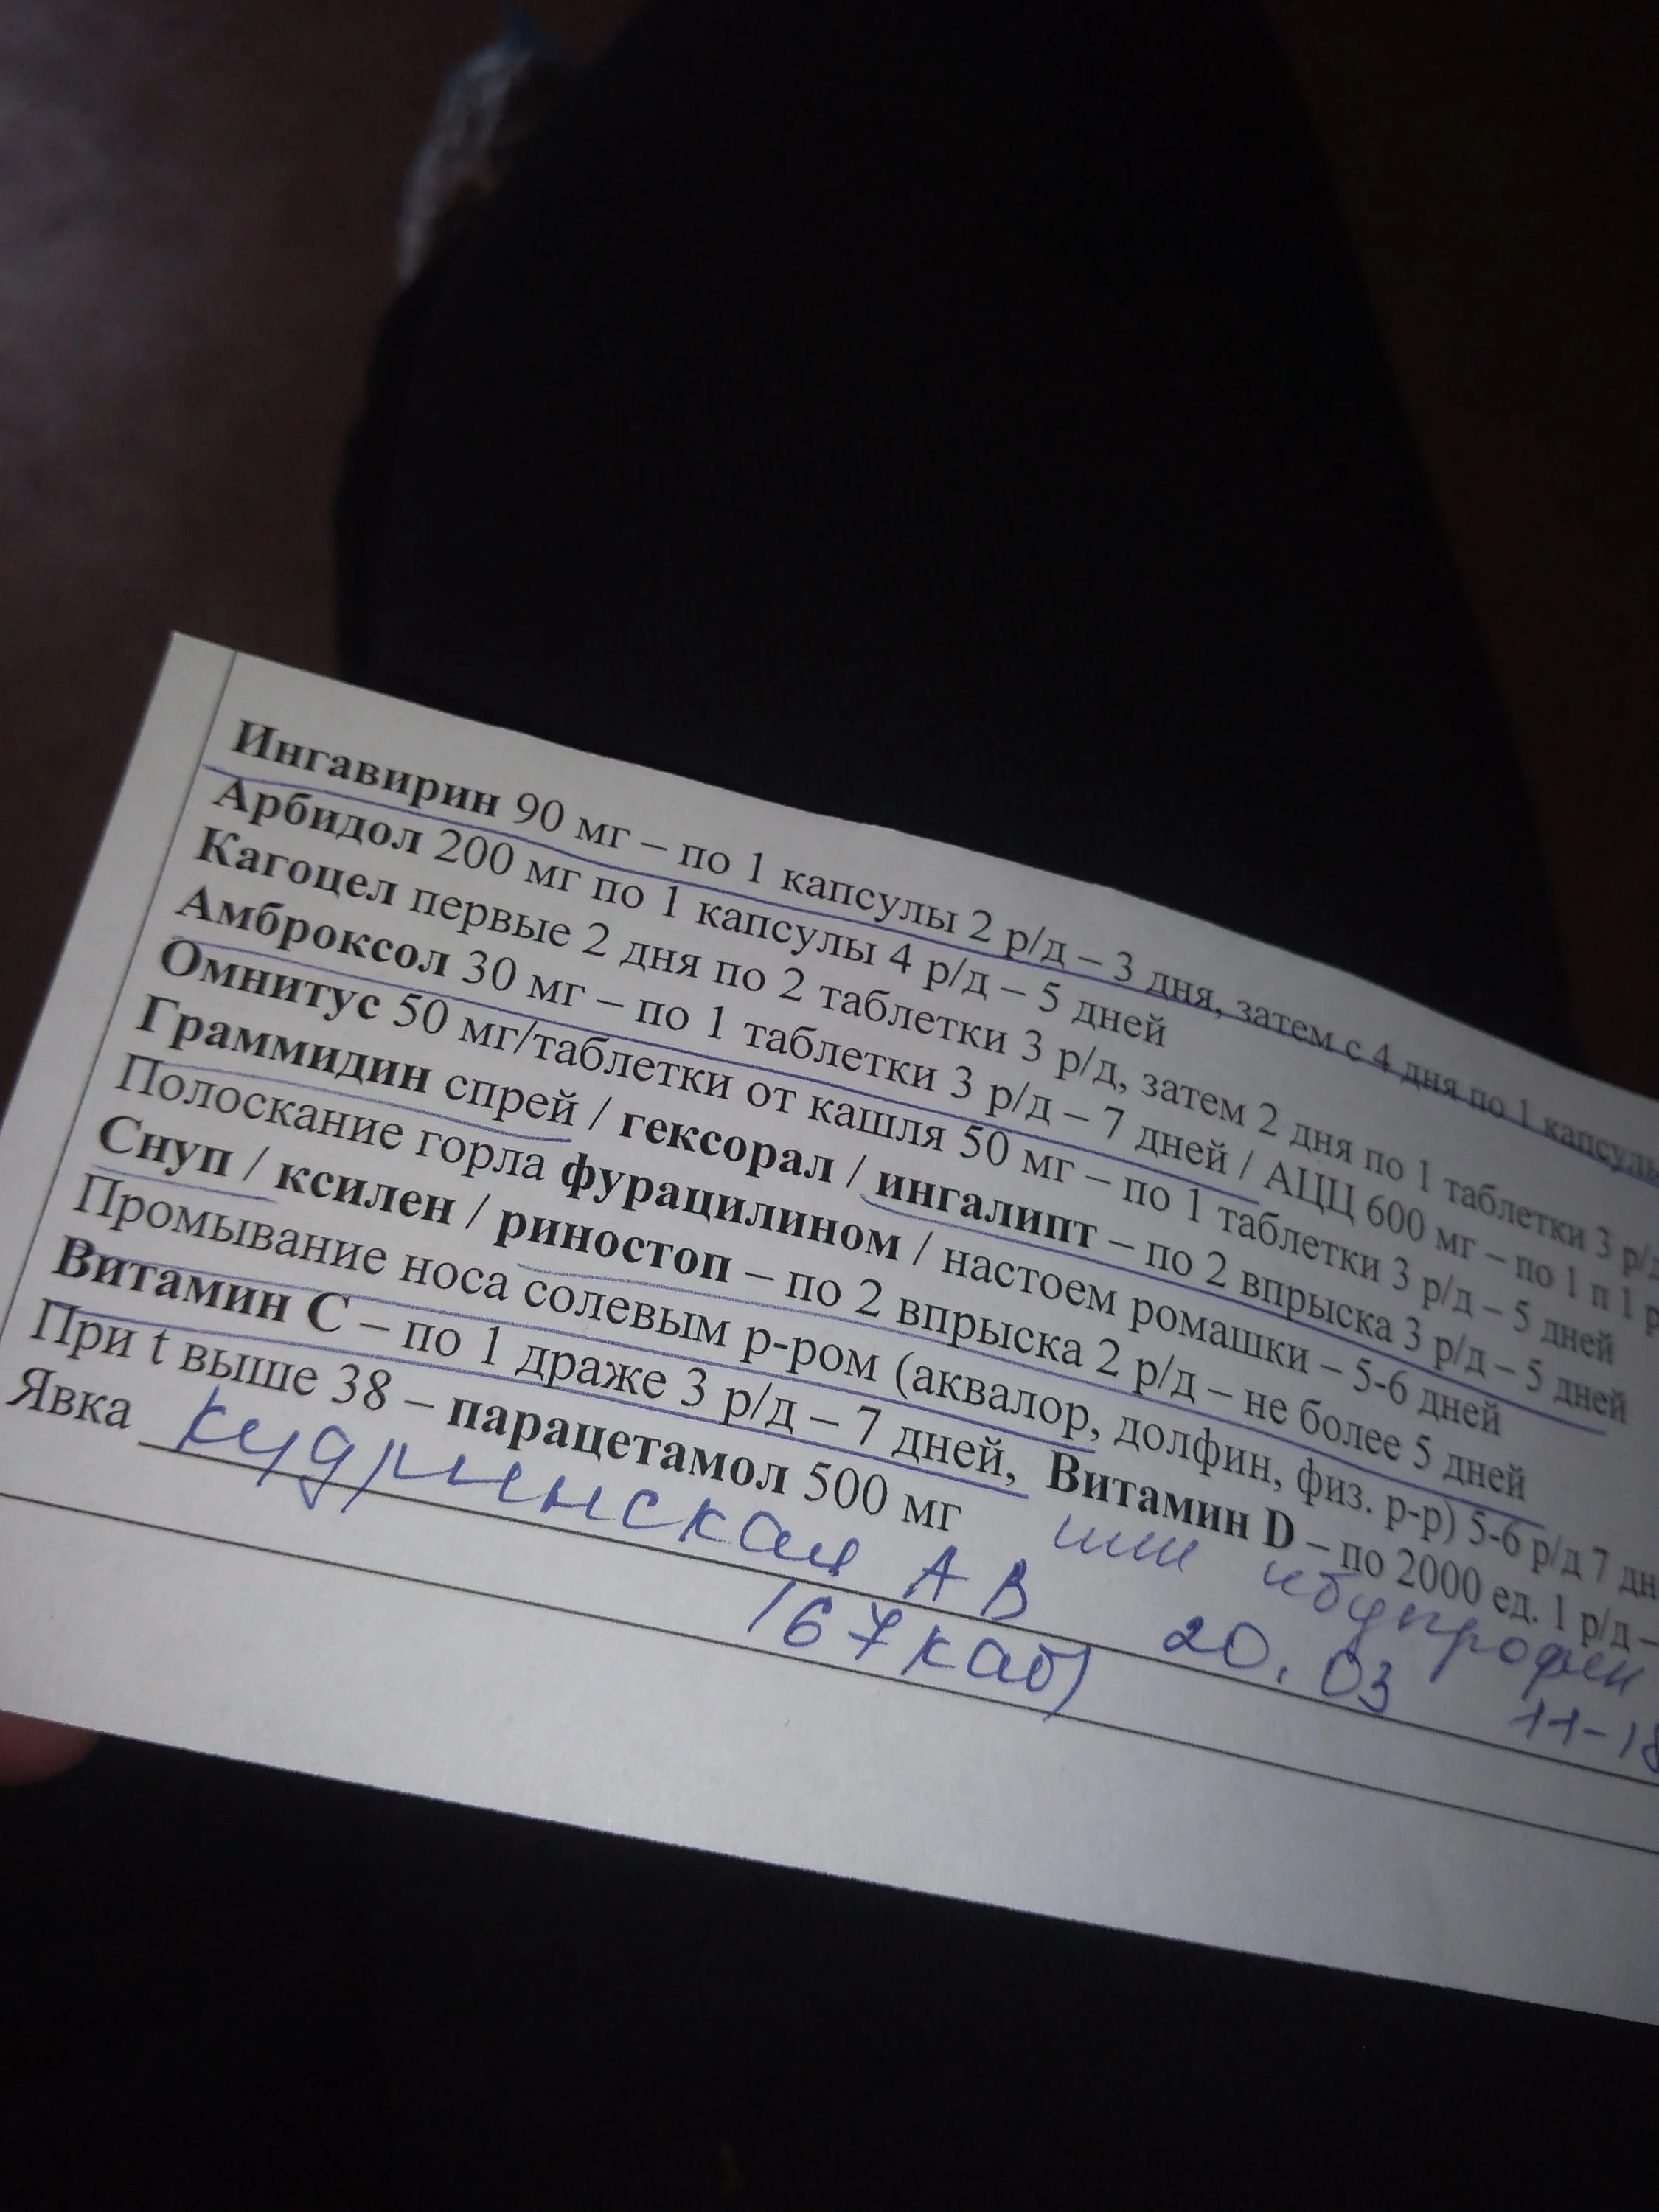 Ингавирин 90 мг – по 1 капсулы 2 р/д – 3 дня, затем с 4 дня по 1 капсулы
Арбидол 200 мг по 1 капсулы 4 р/д – 5 дней
Кагоцел первые 2 дня по 2 таблетки 3 р/д, затем 2 дня по 1 таблетки 3 р/д
Амброксол 30 мг – по 1 таблетки 3 р/д – 7 дней / АЦЦ 600 мг – по 1 п 1 р
Омнитус 50 мг/таблетки от кашля 50 мг – по 1 таблетки 3 р/д – 5 дней
Граммидин спрей / гексорал / ингалипт – по 2 впрыска 3 р/д – 5 дней
Полоскание горла фурацилином / настоем ромашки – 5-6 дней
Снуп / ксилен / риностоп – по 2 впрыска 2 р/д – не более 5 дней
Промывание носа солевым р-ром (аквалор, долфин, физ. р-р) 5-6 р/д 7 дн
Витамин С – по 1 драже 3 р/д – 7 дней, Витамин D – по 2000 ед. 1 р/д –
При t выше 38 – парацетамол 500 мг или ибупрофен
Явка Кудринская А В 20.03 11-18
167 каб)